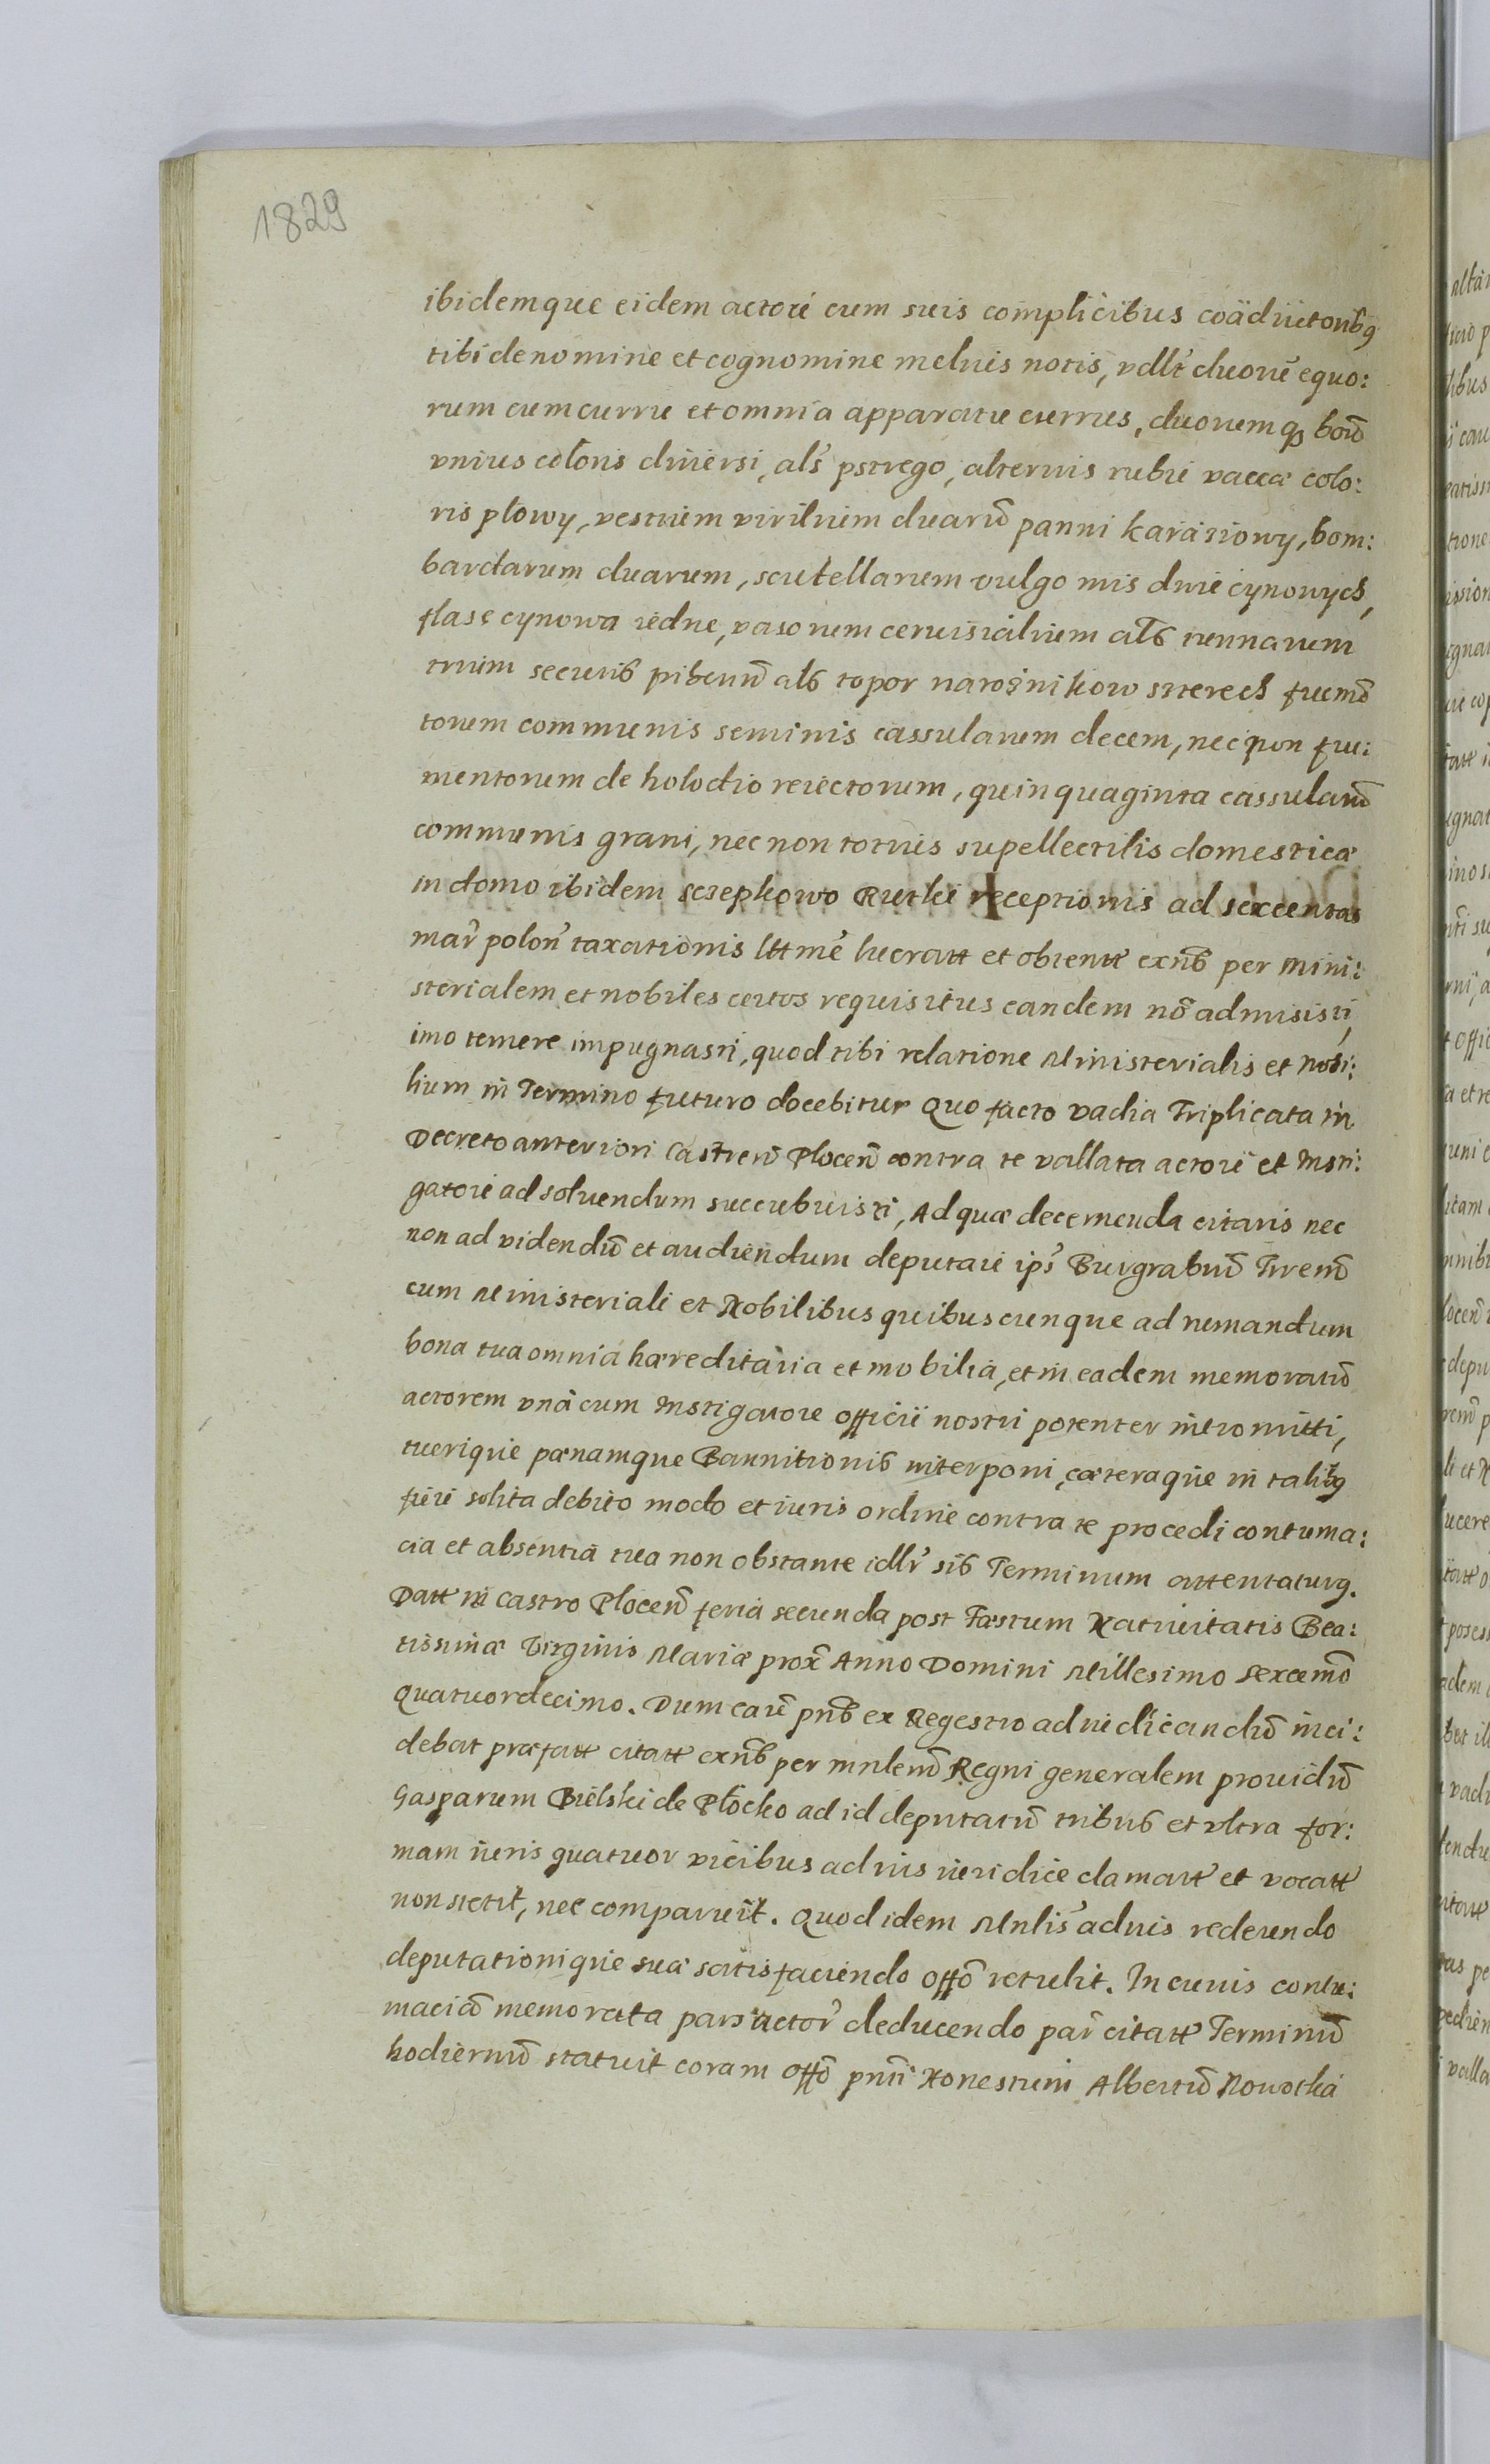 1829
ibidemque eidem actori cum suis complicibus coädiutoribq
tibi de nomine et cognomine melius notis, vdllt duorū equo:
rum cum curru et omnia apparatu currus, duorumq boū
vnius coloris diuersi, als pstrego, alterius rubri vaccæ colo:
ris płowy, vestium virilium duarū panni karaziowy, bom:
bardarum duarum, scutellarum vulgo mis dwie cynowych,
flasę cynowa iedne, vasorum ceruisialium als runnarum
trium securis pibcuū als topor narożnikow szterech frumō
torum communis seminis cassularum decem, nec non fru:
mentorum de holodio reiectorum, quinquaginta cassularū
communis grani, nec non totius supellectilis domesticæ
in domo ibidem Scsepkowo Rutki receptionis ad sexcentas
mar polon taxationis lttme lucratt et obtentt exnb per Mini:
sterialem et nobiles certos requisitus eandem nō admisisti,
imo temere impugnasti, quod tibi relatione Ministerialis et Nobi:
lium in Termino futuro docebitur Quo facto vadia Triplicata in
Decreto anteriori Castren Plocen contra te vallata actori et Insti:
gatori ad soluendum succubuisti, Ad quæ decernenda citaris nec
non ad videndū et audiendum deputari ips Burgrabiū Iurenū
cum Ministeriali et Nobilibus quibuscunque ad numandum
bona tua omnia hæreditaria et mobilia, et in eadem memoratū
actorem vnà cum Instigatore officii nostri potenter intromitti,
tuerique pænamque Bannitionis interponi, cæteraque in talibq
fieri solita debito modo et iuris ordine contra te procedi contuma:
cia et absentia tua non obstante idlr sis Terminum attentaturq.
Datt in Castro Plocen feria secunda post Fæstum Natiuitatis Bea:
tissimæ Virginis Mariæ prox Anno Domini Millesimo Sexcemō
Quatuordecimo. Dum eaiē pnb ex Regestro ad iudicandū inci:
debat præfatt citatt exnb per mnlem Regni generalem prouidū
Gasparum Bielski de Płocko ad id deputatū tribus et vltra for:
mam iuris quatuor vicibus ad ius iuridice clamatt et vocatt
non stetit, nec comparuit. Quod idem Mnlis ad ius redeundo
deputationique suæ satisfaciendo offō retulit. In cuius contu:
maciā memorata pars actor deducendo par citatt Terminū
hodiernū statuit coram offō pnti Honestum Albertū Nowotka